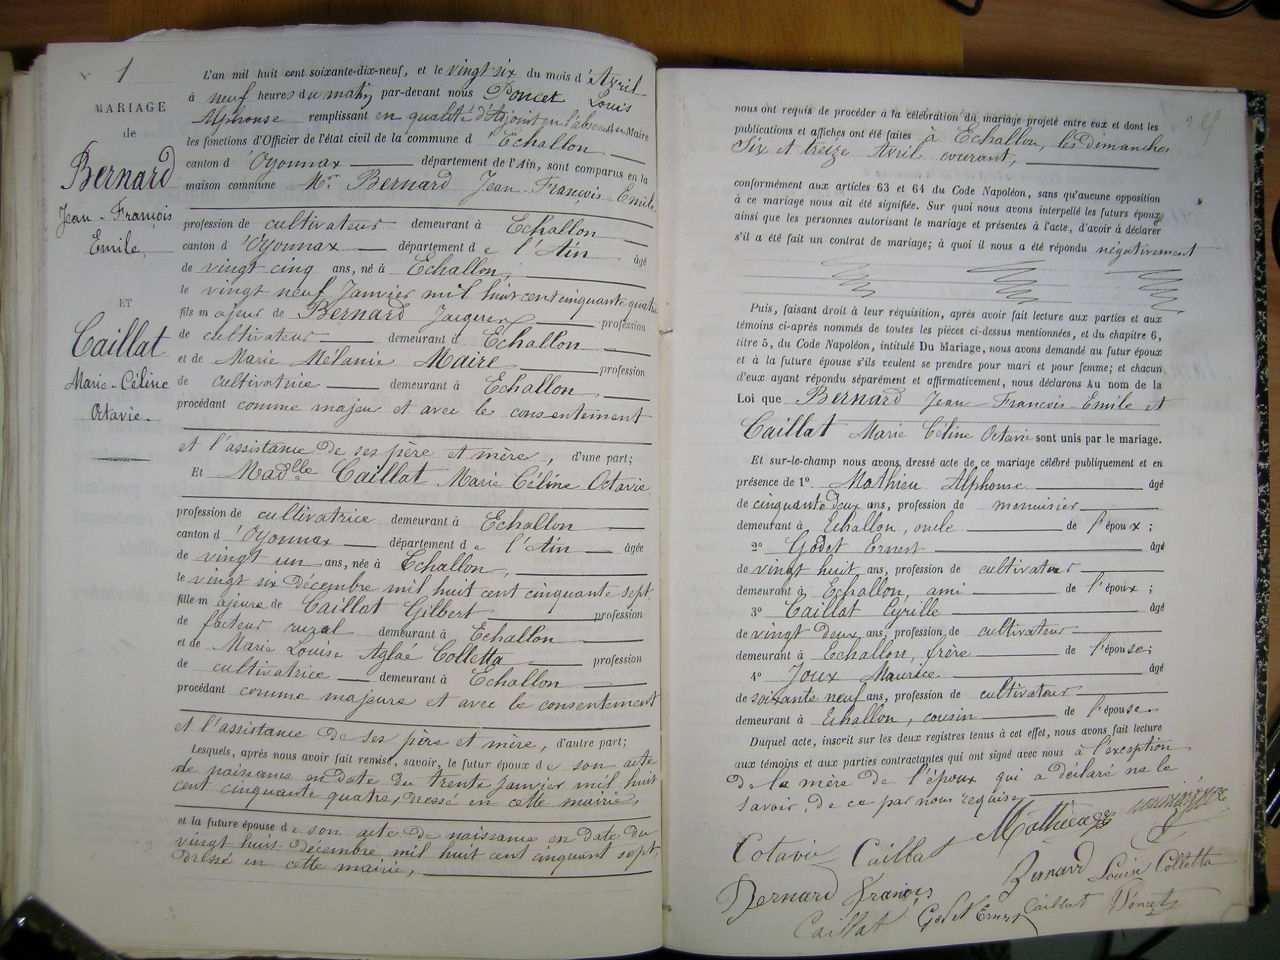 N° 1
MARIAGE
de
Bernard
Jean-François
Emile,
ET
Caillat
Marie-Céline
Octavie.
L'an mil huit cent soixante-dix-neuf, et le vingt six du mois d'Avril
à neuf heures du matin, par-devant nous Poncet Louis
Alphonse remplissant en qualité d'Adjoint en l'absence du Maire
les fonctions d'Officier de l'état civil de la commune d'Echallon
canton d'Oyonnax département de l'Ain, sont comparus en la
maison commune Mr Bernard Jean-François-Emile
profession de cultivateur demeurant à Echallon
canton d'Oyonnax département de l'Ain âgé
de vingt cinq ans, né à Echallon,
le vingt neuf Janvier mil huit cent cinquante quatre
fils majeur de Bernard Jacques profession
de cultivateur demeurant à Echallon
et de Marie Mélanie Maire profession
de cultivatrice demeurant à Echallon,
procédant comme majeur et avec le consentement
et l'assistance de ses père et mère, d'une part;
Et Madlle Caillat Marie Céline Octavie
profession de cultivatrice demeurant à Echallon
canton d'Oyonnax département de l'Ain âgée
de vingt un ans, née à Echallon,
le vingt six Décembre mil huit cent cinquante sept
fille majeure de Caillat Gilbert profession
de facteur rural demeurant à Echallon
et de Marie Louise Aglaé Colletta profession
de cultivatrice demeurant à Echallon
procédant comme majeure et avec le consentement
et l'assistance de ses père et mère, d'autre part;
Lesquels, après nous avoir fait remise, savoir, le futur époux de son acte
de naissance en date du trente Janvier mil huit
cent cinquante quatre, dressé en cette mairie,
et la future épouse de son acte de naissance en date du
vingt huit Décembre mil huit cent cinquant sept,
dressé en cette mairie,
nous ont requis de procéder à la célébration du mariage projeté entre eux et dont les
publications et affiches ont été faites à Echallon, les dimanches
Six et treize Avril courant,
conformément aux articles 63 et 64 du Code Napoléon, sans qu'aucune opposition
à ce mariage nous ait été signifiée. Sur quoi nous avons interpellé les futurs époux
ainsi que les personnes autorisant le mariage et présentes à l'acte, d'avoir à déclarer
s'il a été fait un contrat de mariage; à quoi il nous a été répondu négativement
Puis, faisant droit à leur réquisition, après avoir fait lecture aux parties et aux
témoins ci-après nommés de toutes les pièces ci-dessus mentionnées, et du chapitre 6,
titre 5, du Code Napoléon, intitulé Du Mariage, nous avons demandé au futur époux
et à la future épouse s'ils veulent se prendre pour mari et pour femme; et chacun
d'eux ayant répondu séparément et affirmativement, nous déclarons Au nom de la
Loi que Bernard Jean-François-Emile et
Caillat Marie Céline Octavie sont unis par le mariage.
Et sur-le-champ nous avons dressé acte de ce mariage célébré publiquement et en
présence de 1° Mathieu Alphonse âgé
de cinquante deux ans, profession de menuisier
demeurant à Echallon, oncle de l'époux;
2° Godet Ernest âgé
de vingt huit ans, profession de cultivateur
demeurant à Echallon, ami de l'époux;
3° Caillat Cyrille âgé
de vingt deux ans, profession de cultivateur
demeurant à Echallon, frère de l'épouse;
4° Joux Maurice âgé
de soixante neuf ans, profession de cultivateur
demeurant à Echallon, cousin de l'épouse.
Duquel acte, inscrit sur les deux registres tenus à cet effet, nous avons fait lecture
aux témoins et aux parties contractantes qui ont signé avec nous à l'exception
de la mère de l'époux qui a déclaré ne le
savoir, de ce par nous requise
Mathieu
Octavie Caillat
Bernard Louise Colletta
Bernard François
Caillat Godet Ernest Caillat Poncet